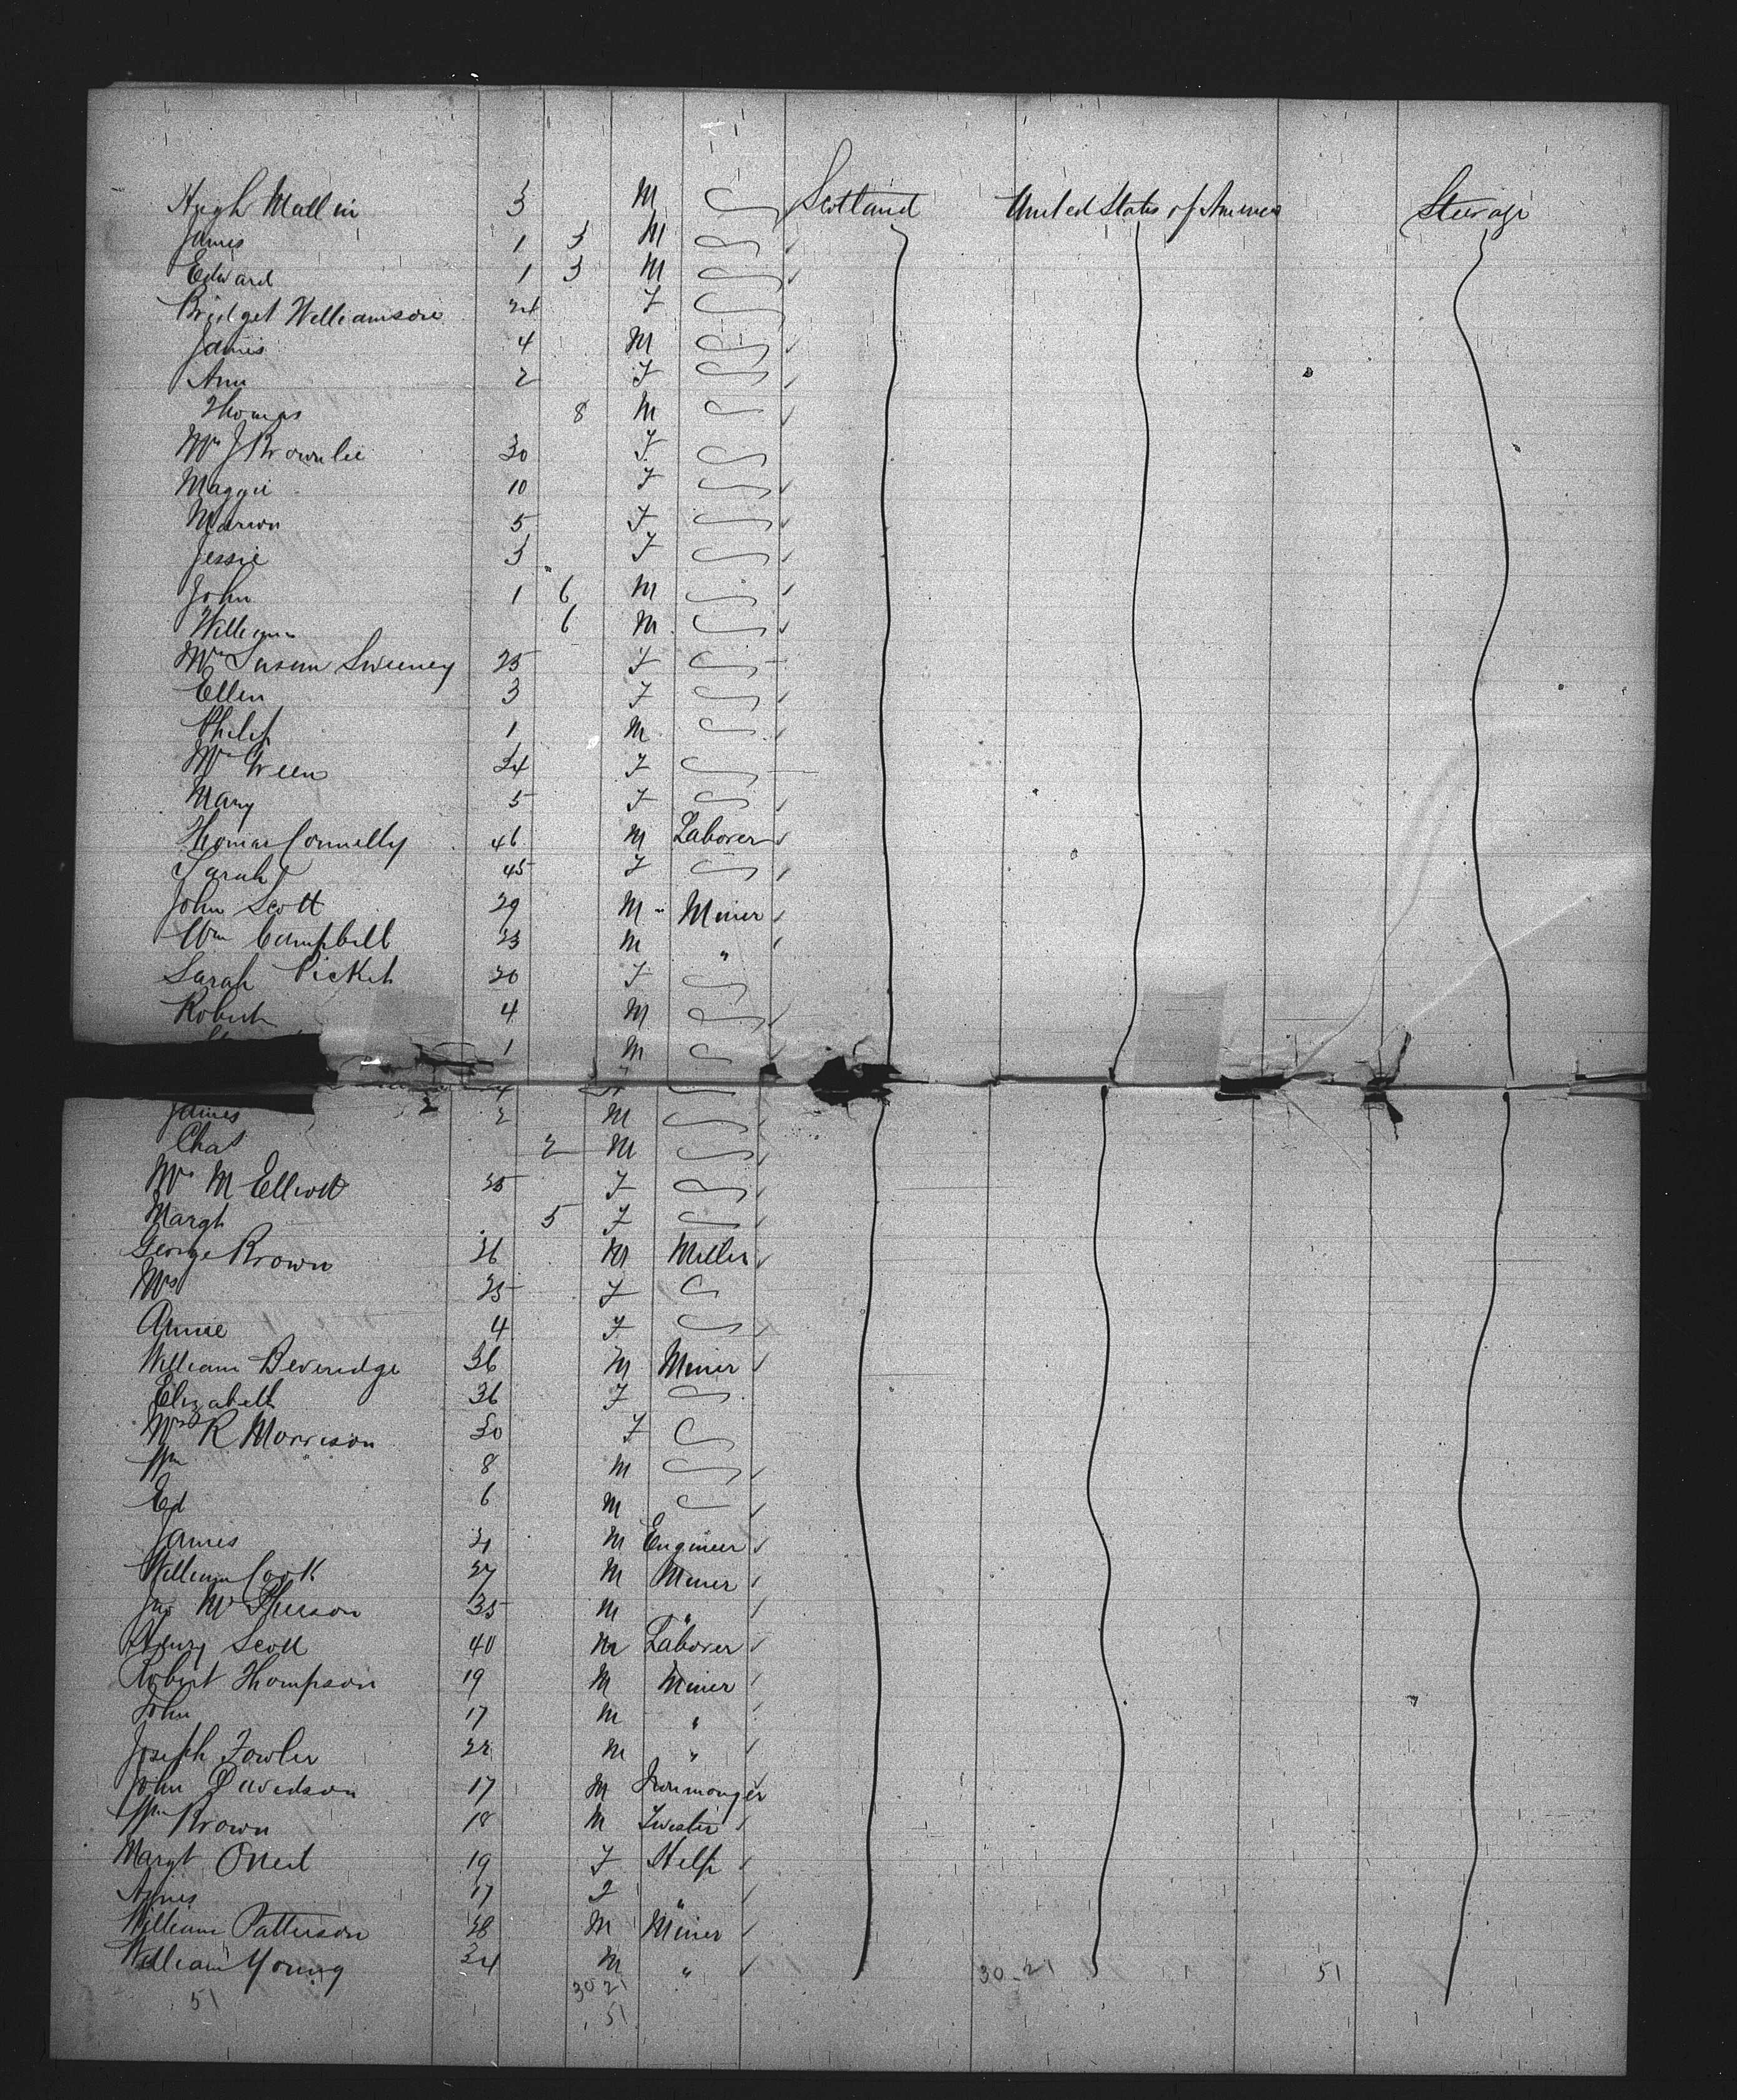 Hugh Mallin 3 M Scotland United States of America Steerage
James 1 3 M
Edward 1 3 M
Bridget Williamson 24 F
James 4 M
Ann 2 F
Thomas 8 M
Mrs J Brownlie 30 F
Maggie 10 F
Marion 5 F
Jessie 3 F
John 1 6 M
William 6 M
Mrs Susan Sweeney 25 F
Ellen 3 F
Philip 1 M
Mrs Green 34 F
Mary 5 F
Thomas Connelly 46 M Laborer
Sarah 45 F
John Scott 29 M " Miner
Wm Campbell 23 M "
Sarah Picket 20 F
Robert 4 M
1 M
James 2 M
Chas 2 M
Mrs M Elliott 35 F
Margt 5 F
George Brown 36 M Miller
Mrs 35 F
Annie 4 F
William Beveridge 36 M Miner
Elizabeth 36 F
Mrs R Morrison 30 F
Wm 8 M
Ed 6 M
James M Engineer
William Cook 27 M Miner
Jno McPherson 35 M "
Henry Scott 40 M Laborer
Robert Thompson 19 M Miner
John 17 M "
Joseph Fowler 22 M "
John Davidson 17 M Ironmonger
Wm Brown 18 M
Margt ONeil 19 F Help
Agnes 17 F "
William Patterson 38 M Miner
William Young 34 M "
51 30 21 30-21 51
51